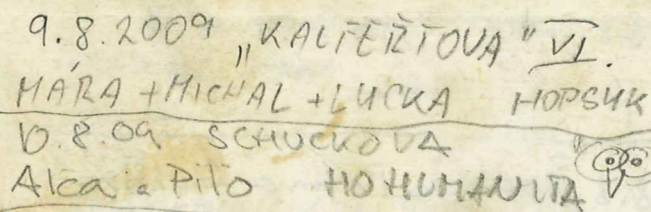 9.8.2009 „KALFEŘTOVA" VI.
MÁRA + MICHAL + LUCKA HOPSUK
10.8.09 SCHUCKOVA
Alca a Pilo HOHUMANITA